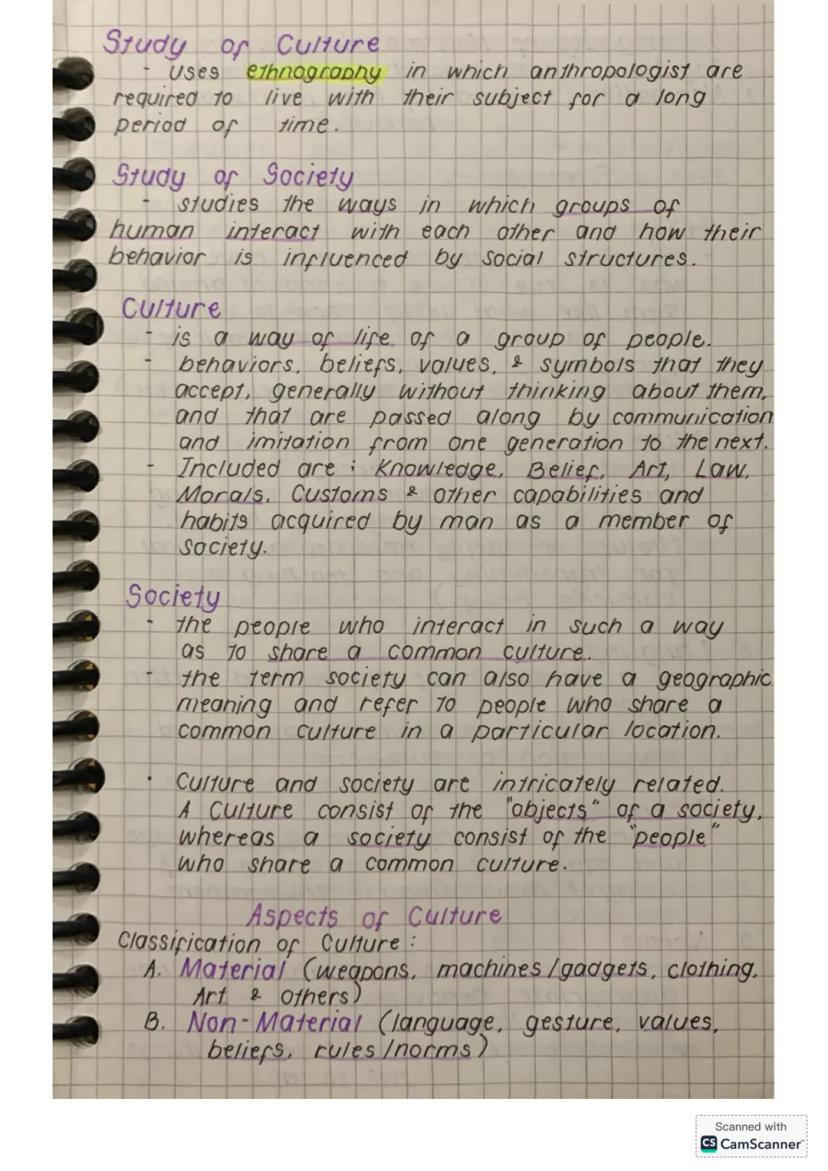 Study of Culture
- uses ethnography in which anthropologist are
required to live with their subject for a long
period of time.
Study of Society
- studies the ways in which groups of
human interact with each other and how their
behavior is influenced by social structures.
Culture
- is a way of life of a group of people.
- behaviors, beliefs, values, & symbols that they
accept, generally without thinking about them,
and that are passed along by communication
and imitation from one generation to the next.
- Included are ; Knowledge, Belief, Art, Law,
Morals, Customs & other capabilities and
habits acquired by man as a member of
society.
Society
- the people who interact in such a way
as to share a common culture.
- the term society can also have a geographic
meaning and refer to people who share a
common culture in a particular location.
• Culture and society are intricately related.
A culture consist of the "objects" of a society,
whereas a society consist of the "people"
who share a common culture.
Aspects of Culture
Classification of Culture :
A. Material (weapons, machines/gadgets, clothing,
Art & others)
B. Non-Material (language, gesture, values,
beliefs, rules/norms)
Scanned with
CS CamScanner